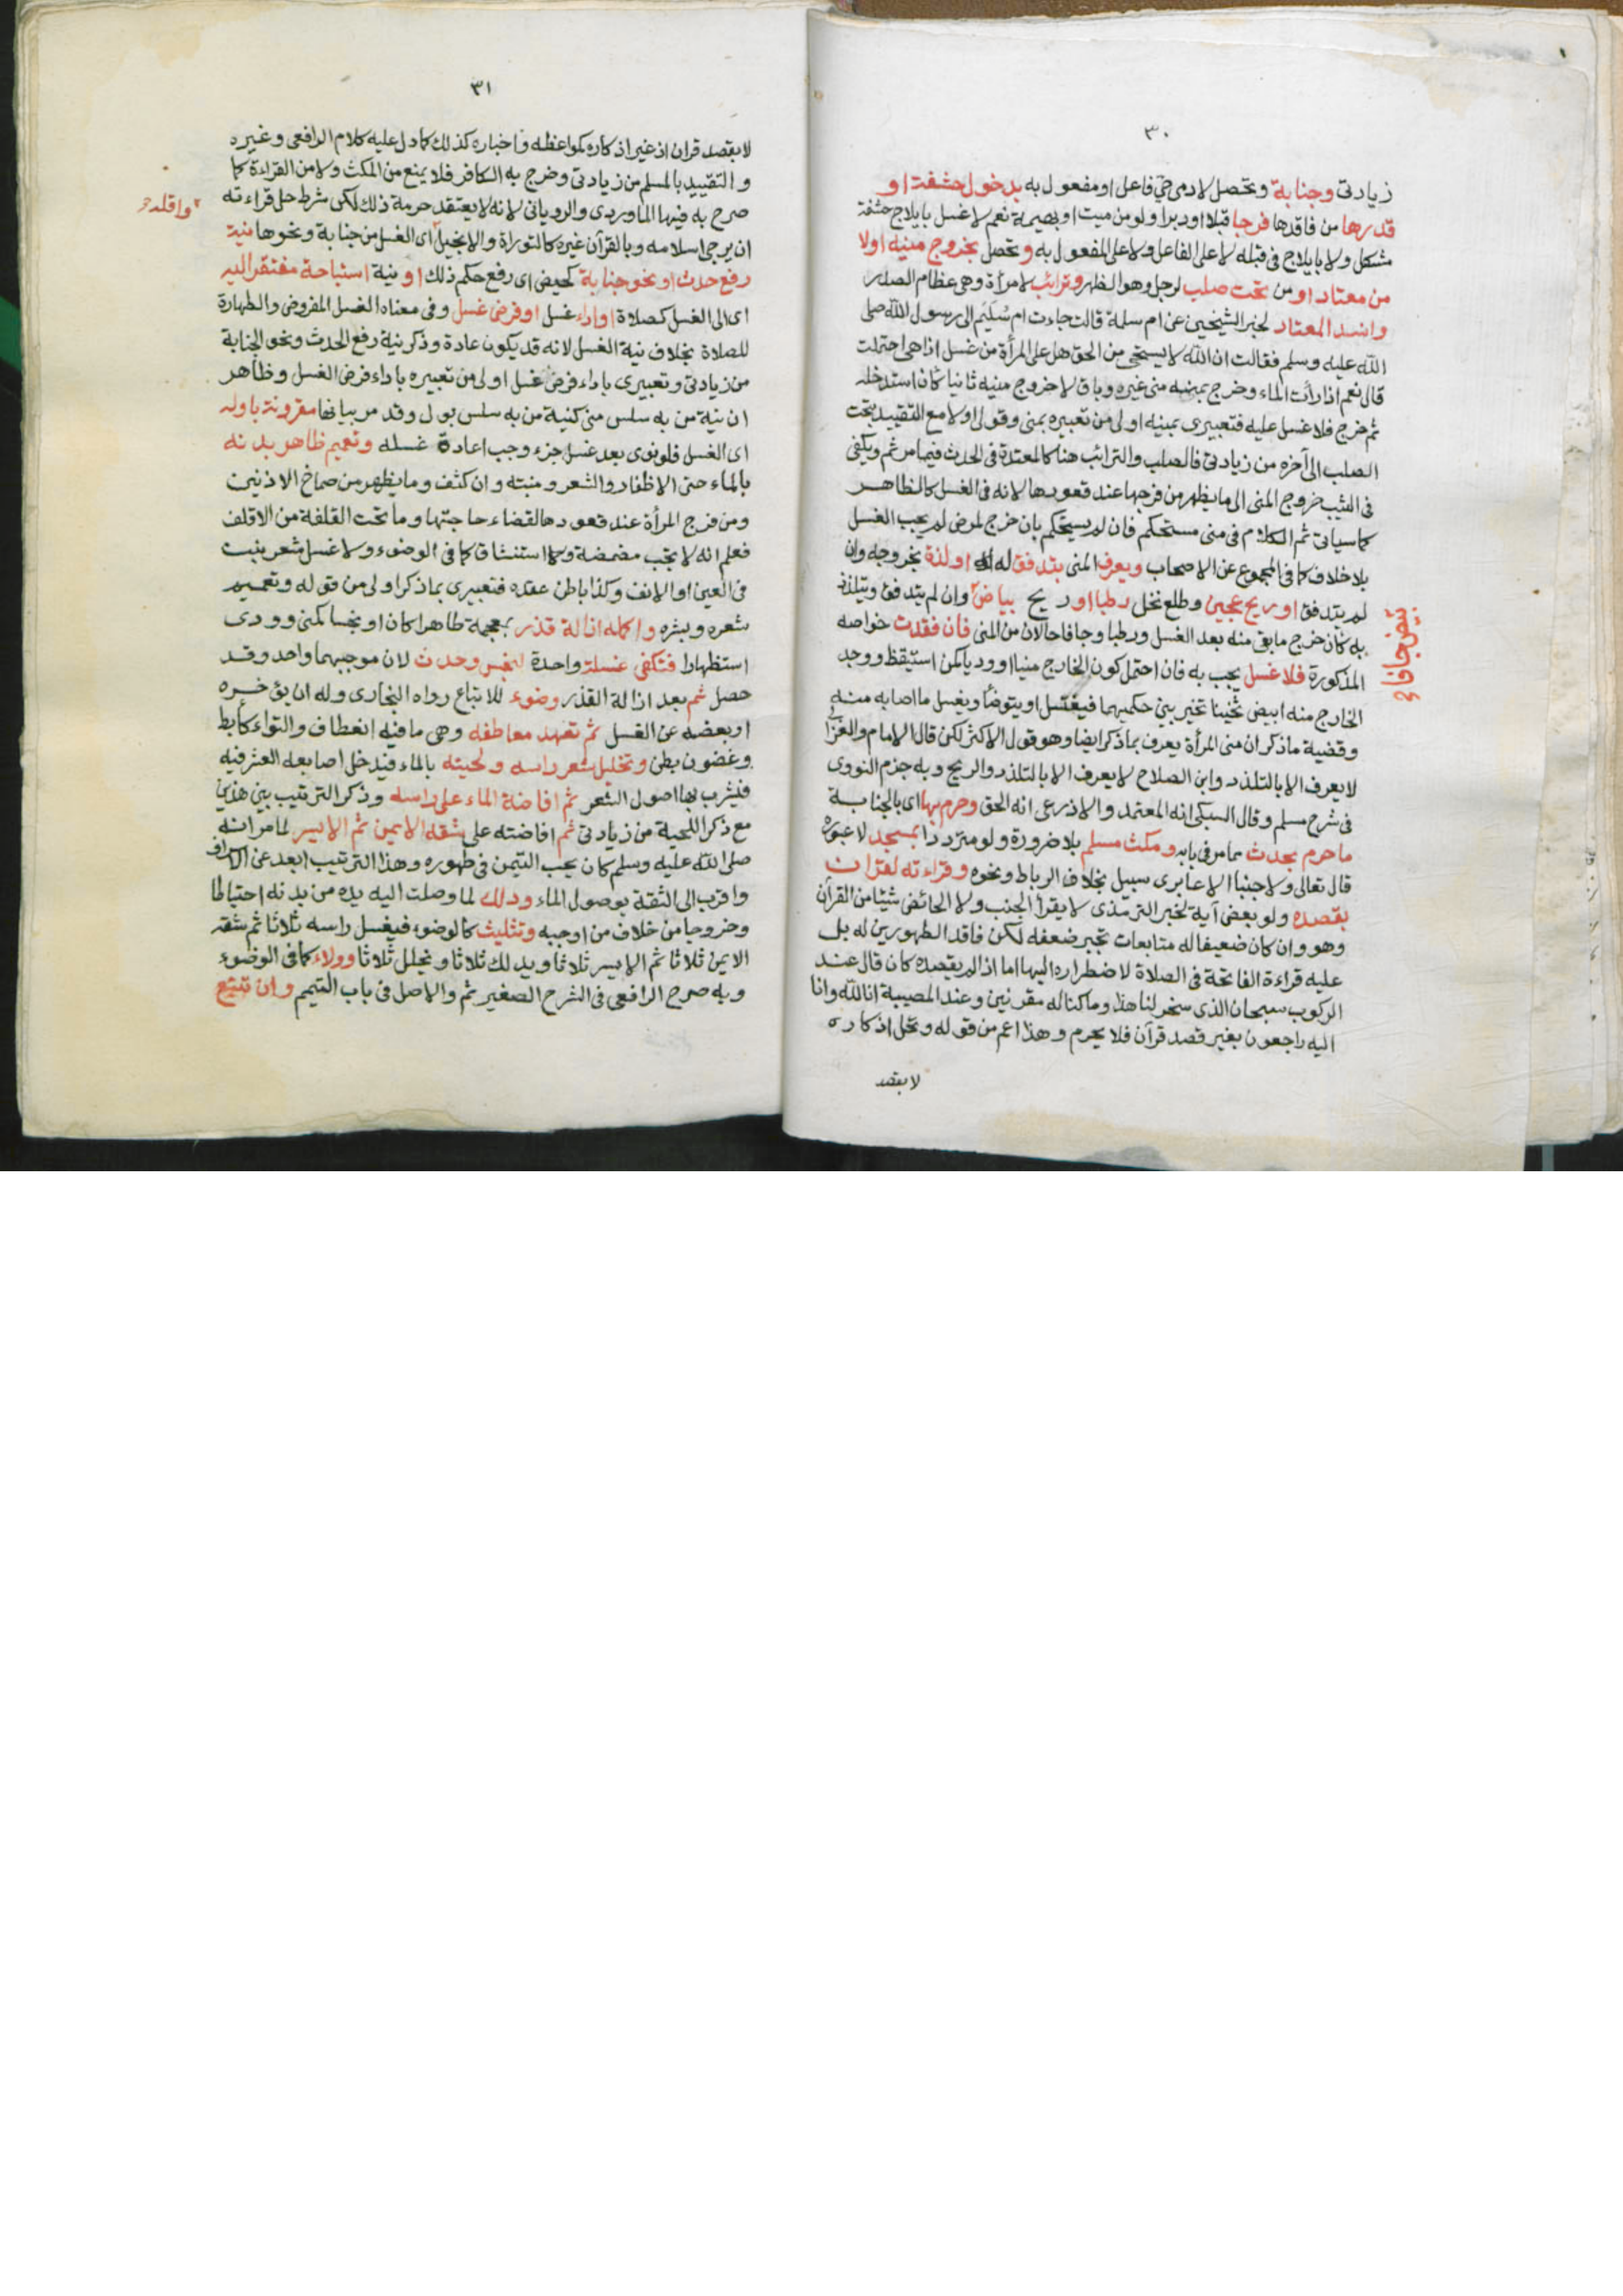 ٣٠
زيادتى وجنابة وتحصل لآدمى حى فاعل او مفعول به بدخول حشفة او
قدرها من فاقدها فرجا قبلا او دبرا ولو من ميت او بهيمة نعم لا غسل بايلاج حشفة
مشكل ولا بايلاج فى قبله لا على الفاعل ولا على المفعول به وتحصل بخروج منيه اولا
من معتاد او من تحت صلب لرجل وهو الظهر وترائب لامرأة وهى عظام الصدر
وانسد المعتاد لخبر الشيخين عن ام سلمة قالت جاءت ام سُلَيم الى رسول الله صلى
الله عليه وسلم فقالت ان الله لا يستحى من الحق هل على المرأة من غسل اذا هى احتلمت
قال نعم اذا رأت الماء وخرج بمنيه منى غيره وباق لا خروج منيه ثانيا كأن استدخله
ثم خرج فلا غسل عليه فتعبيرى بمنيه اولى من تعبيره بمنى وقولى اولا مع التقييد بتحت
الصلب الى آخره من زيادتى فالصلب والترائب هنا كالمعدة فى الحدث فيما مر ثم ويكفى
فى الثيب خروج المنى الى ما يظهر من فرجها عند قعودها لانه فى الغسل كالظاهر
كما سياتى ثم الكلام فى منى مستحكم فان لم يستحكم بان خرج لمرض لم يجب الغسل
بلا خلاف كما فى المجموع عن الاصحاب ويعرف المنى بتدفق له او لذة بخروجه وان
لم يتدفق او ريح عجين وطلع نخل رطبا او ريح بياض وان لم يتدفق ويتلذذ
به كأن خرج ما بقى منه بعد الغسل ورطبا وجافا حالان من المنى فان فقدت خواصه
المذكورة فلا غسل يجب به فان احتمل كون الخارج منيا او وديا كمن استيقظ ووجد
الخارج منه ابيض ثخينا تخير بين حكميهما فيغتسل او يتوضأ ويغسل ما اصابه منه
وقضية ما ذكر ان منى المرأة يعرف بما ذكر ايضا وهو قول الاكثر لكن قال الامام والغزالى
لا يعرف الا بالتلذذ وابن الصلاح لا يعرف الا بالتلذذ والريح وبه جزم النووى
فى شرح مسلم وقال السبكى انه المعتمد والاذرعى انه الحق وحرم بها اى بالجنابة
ما حرم بحدث مما مر فى بابه ومكث مسلم بلا ضرورة ولو مترددا بمسجد لا عبوره
قال تعالى ولا جنبا الا عابرى سبيل بخلاف الرباط ونحوه وقراءته لقرآن
بقصده ولو بعض آية لخبر الترمذى لا يقرأ الجنب ولا الحائض شيئا من القرآن
وهو وان كان ضعيفا له متابعات تجبر ضعفه لكن فاقد الطهورين له بل
عليه قراءة الفاتحة فى الصلاة لاضطراره اليها اما اذا لم يقصده كان قال عند
الركوب سبحان الذى سخر لنا هذا وما كنا له مقرنين وعند المصيبة انا لله وانا
اليه راجعون بغير قصد قرآن فلا يحرم وهذا اعم من قوله وتحل اذكاره
لا بقصد
٣١
لا بقصد قران اذ غير اذكاره كمواعظه واخباره كذلك كما دل عليه كلام الرافعى وغيره
والتقييد بالمسلم من زيادتى وخرج به الكافر فلا يمنع من المكث ولا من القراءة كما
صرح به فيها الماوردى والرويانى لانه لا يعتقد حرمة ذلك لكن شرط حل قراءته
ان يرجى اسلامه وبالقرآن غيره كالتوراة والانجيل اى الغسل من جنابة ونحوها نية
واقله
رفع حدث او نحو جنابة كحيض اى رفع حكم ذلك او نية استباحة مفتقر اليه
اى الى الغسل كصلاة او اداء غسل او فرض غسل وفى معناه الغسل المفروض والطهارة
للصلاة بخلاف نية الغسل لانه قد يكون عادة وذكر نية رفع الحدث ونحو الجنابة
من زيادتى وتعبيرى باداء فرض غسل اولى من تعبيره باداء فرض الغسل وظاهر
ان نية من به سلس منى كنية من به سلس بول وقد مر بيانها مقرونة باوله
اى الغسل فلو نوى بعد غسل جزء وجب اعادة غسله وتعميم ظاهر بدنه
بالماء حتى الاظفار والشعر ومنبته وان كثف وما يظهر من صماخ الاذنين
ومن فرج المرأة عند قعودها لقضاء حاجتها وما تحت القلفة من الاقلف
فعلم انه لا تجب مضمضة ولا استنشاق كما فى الوضوء ولا غسل شعر ينبت
فى العين او الانف وكذا باطن عقده فتعبيرى بما ذكر اولى من قوله وتعميم
شعره وبشره واكمله ازالة قذر بمعجمة طاهرا كان او نجسا كمنى وودى
استظهارا فتكفى غسلة واحدة لنجس وحدث لان موجبهما واحد وقد
حصل ثم بعد ازالة القذر وضوء للاتباع رواه البخارى وله ان يؤخره
او بعضه عن الغسل ثم تعهد معاطفه وهى ما فيه انعطاف والتواء كأبط
وغضون بطن وتخليل شعر راسه ولحيته بالماء فيدخل اصابعه العشر فيه
فيشرب بها اصول الشعر ثم افاضة الماء على راسه وذكر الترتيب بين هذين
مع ذكر اللحية من زيادتى ثم افاضته على شقه الايمن ثم الايسر لما مر انه
صلى الله عليه وسلم كان يحب التيمن فى طهوره وهذا الترتيب ابعد عن الاسراف
واقرب الى الثقة بوصول الماء ودلك لما وصلت اليه يده من بدنه احتياطا
وخروجا من خلاف من اوجبه وتثليث كالوضوء فيغسل راسه ثلاثا ثم شقه
الايمن ثلاثا ثم الايسر ثلاثا ويدلك ثلاثا ويخلل ثلاثا وولاء كما فى الوضوء
وبه صرح الرافعى فى الشرح الصغير ثم والاصل فى باب التيمم وان تتبع